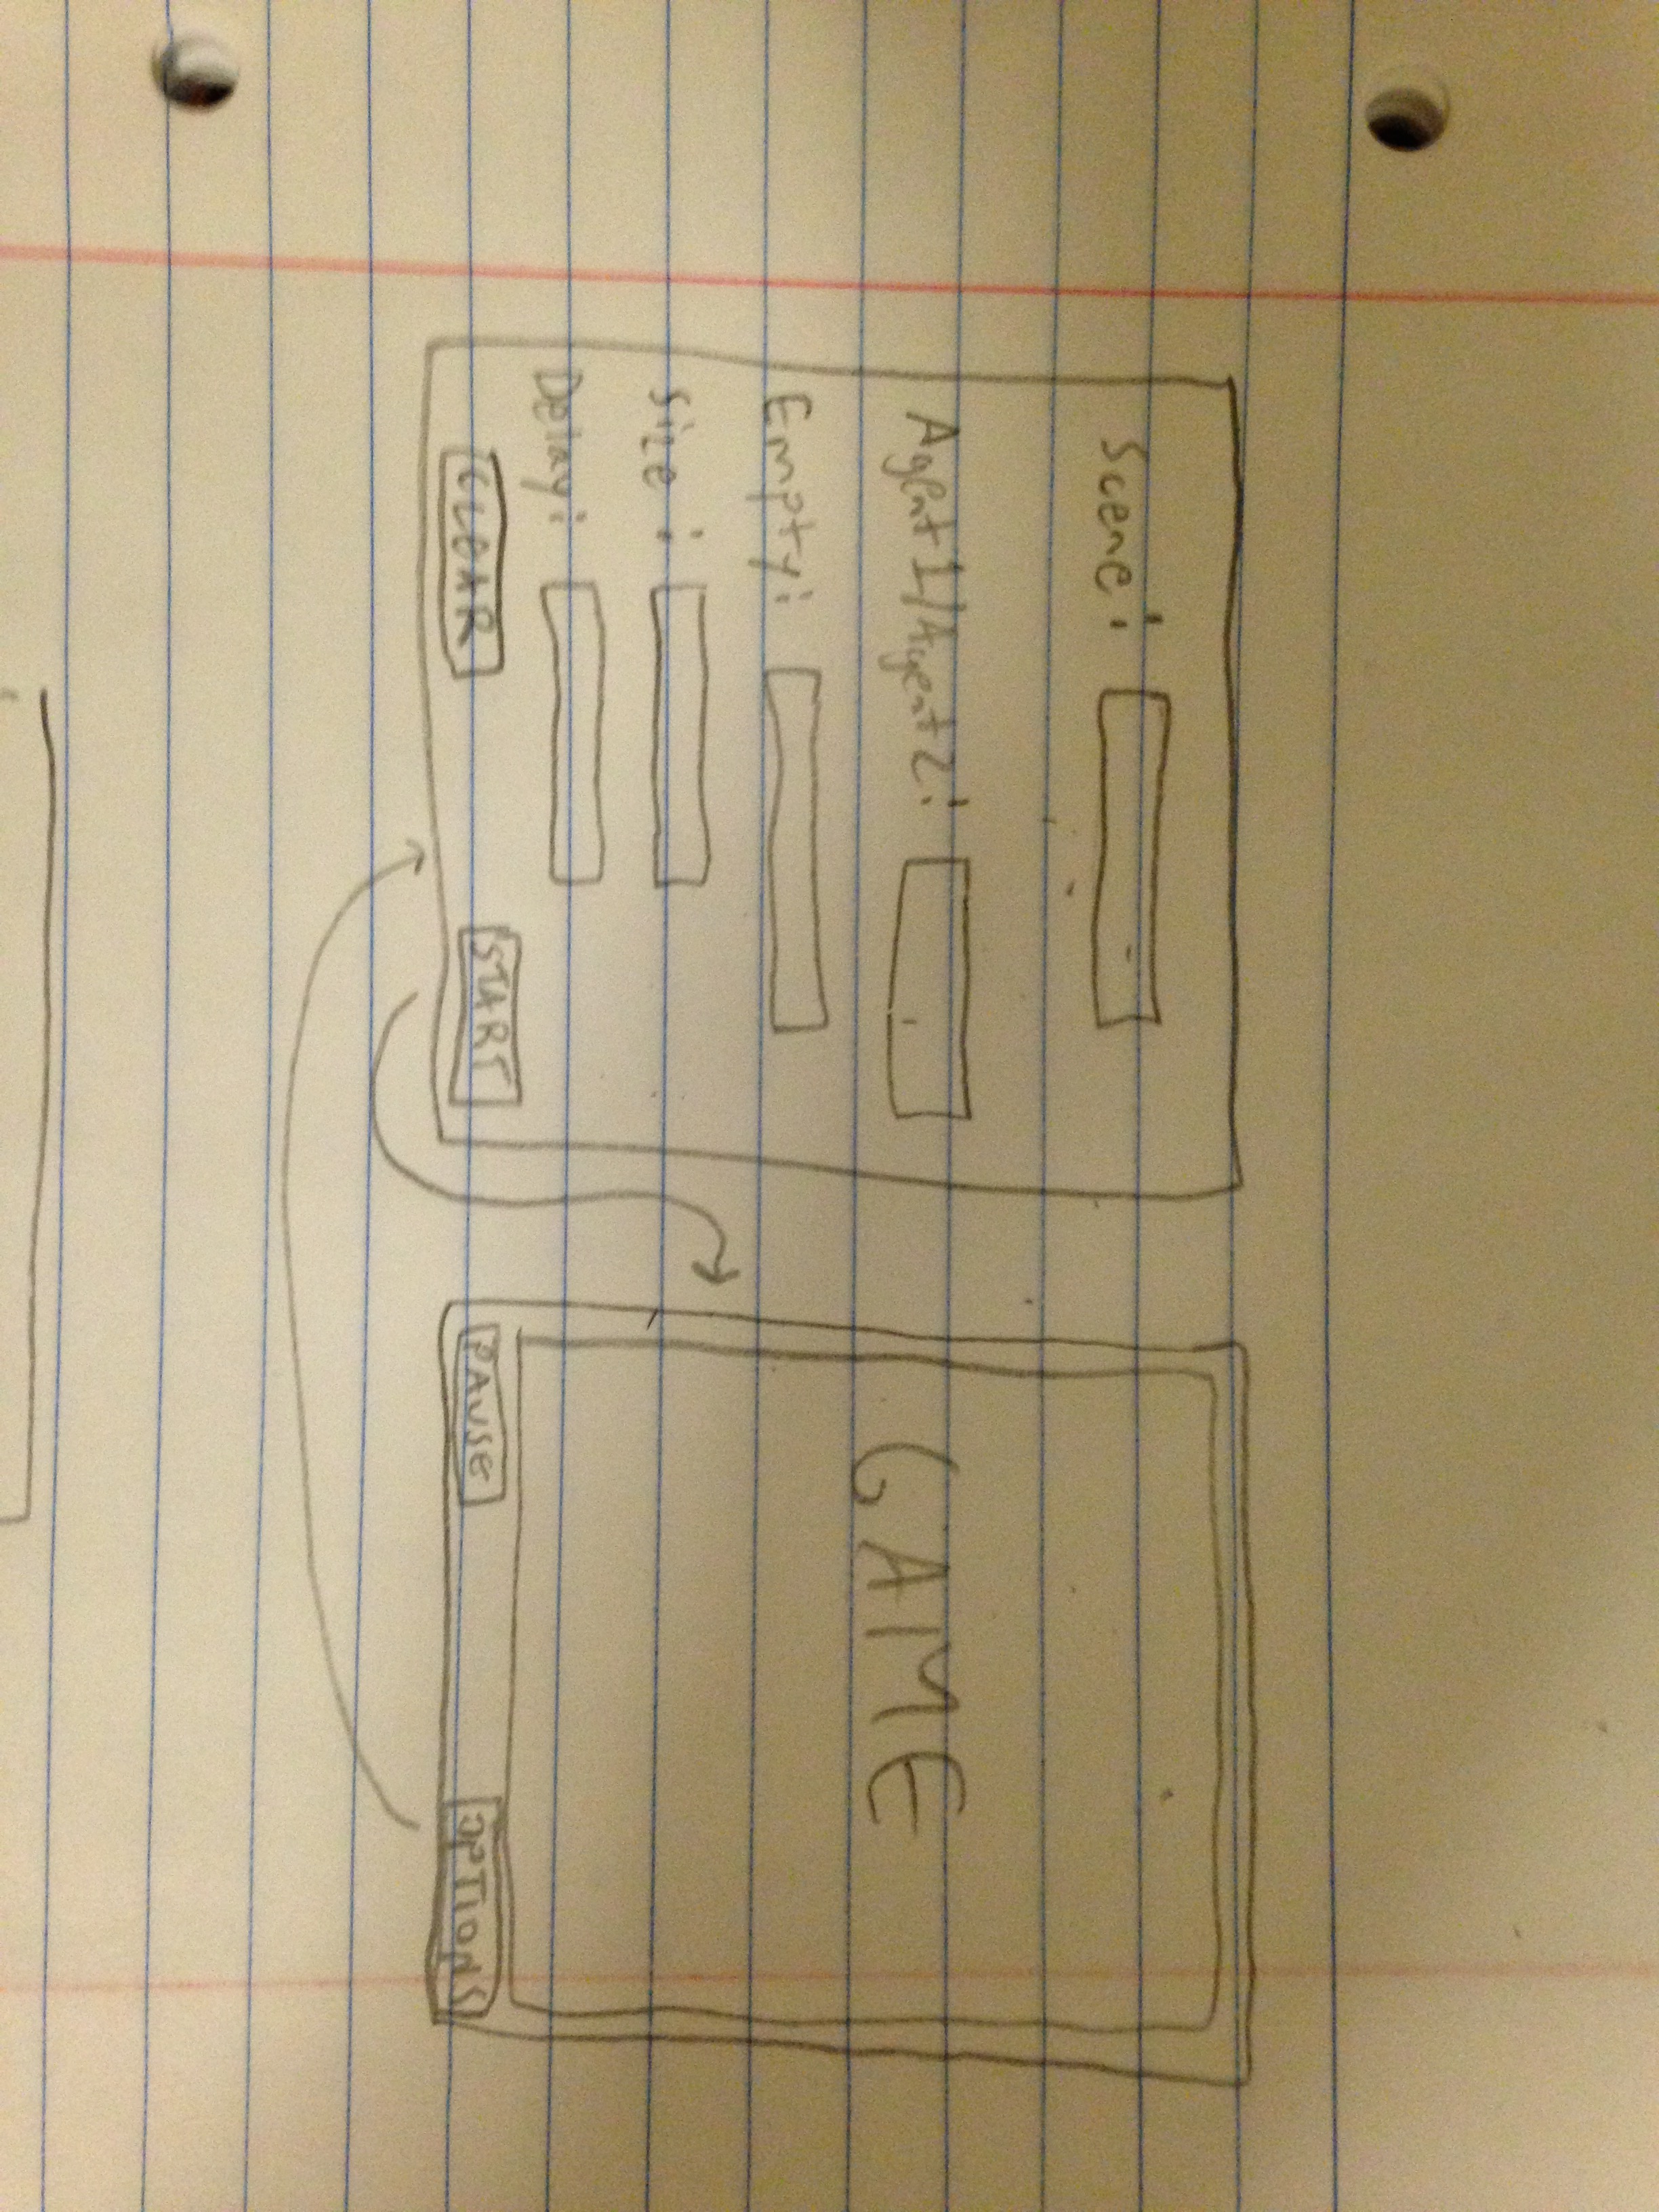 Scene:
Agent1/Agent2:
Empty:
Size:
Delay:
CLEAR START
GAME
PAUSE OPTIONS